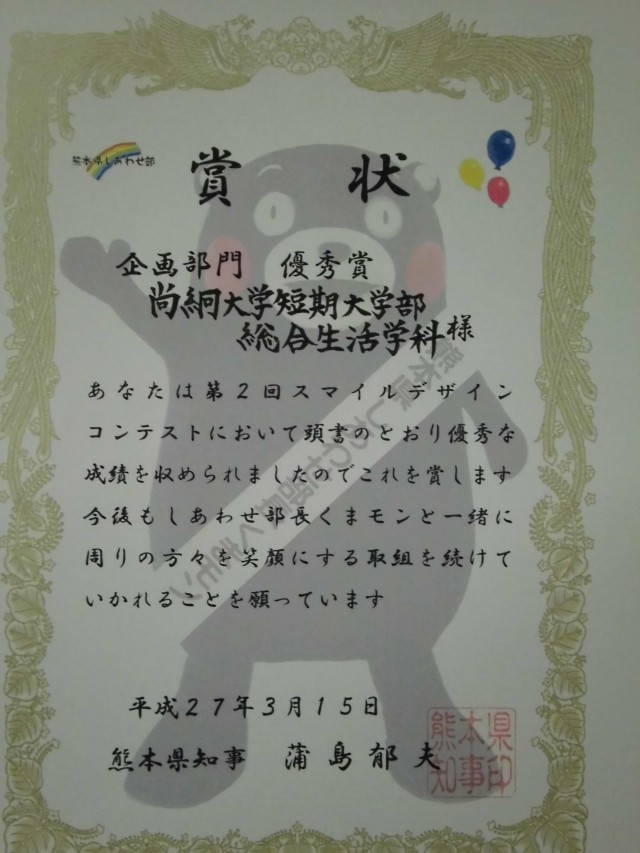 熊本県しあわせ部
賞状
企画部門 優秀賞
尚絅大学短期大学部
総合生活学科様
あなたは第2回スマイルデザイン
コンテストにおいて頭書のとおり優秀な
成績を収められましたのでこれを賞します
今後もしあわせ部長くまモンと一緒に
周りの方々を笑顔にする取組を続けて
いかれることを願っています
熊本県しあわせ部長くまモン
平成27年3月15日
熊本県知事 蒲島郁夫
熊本県
知事印